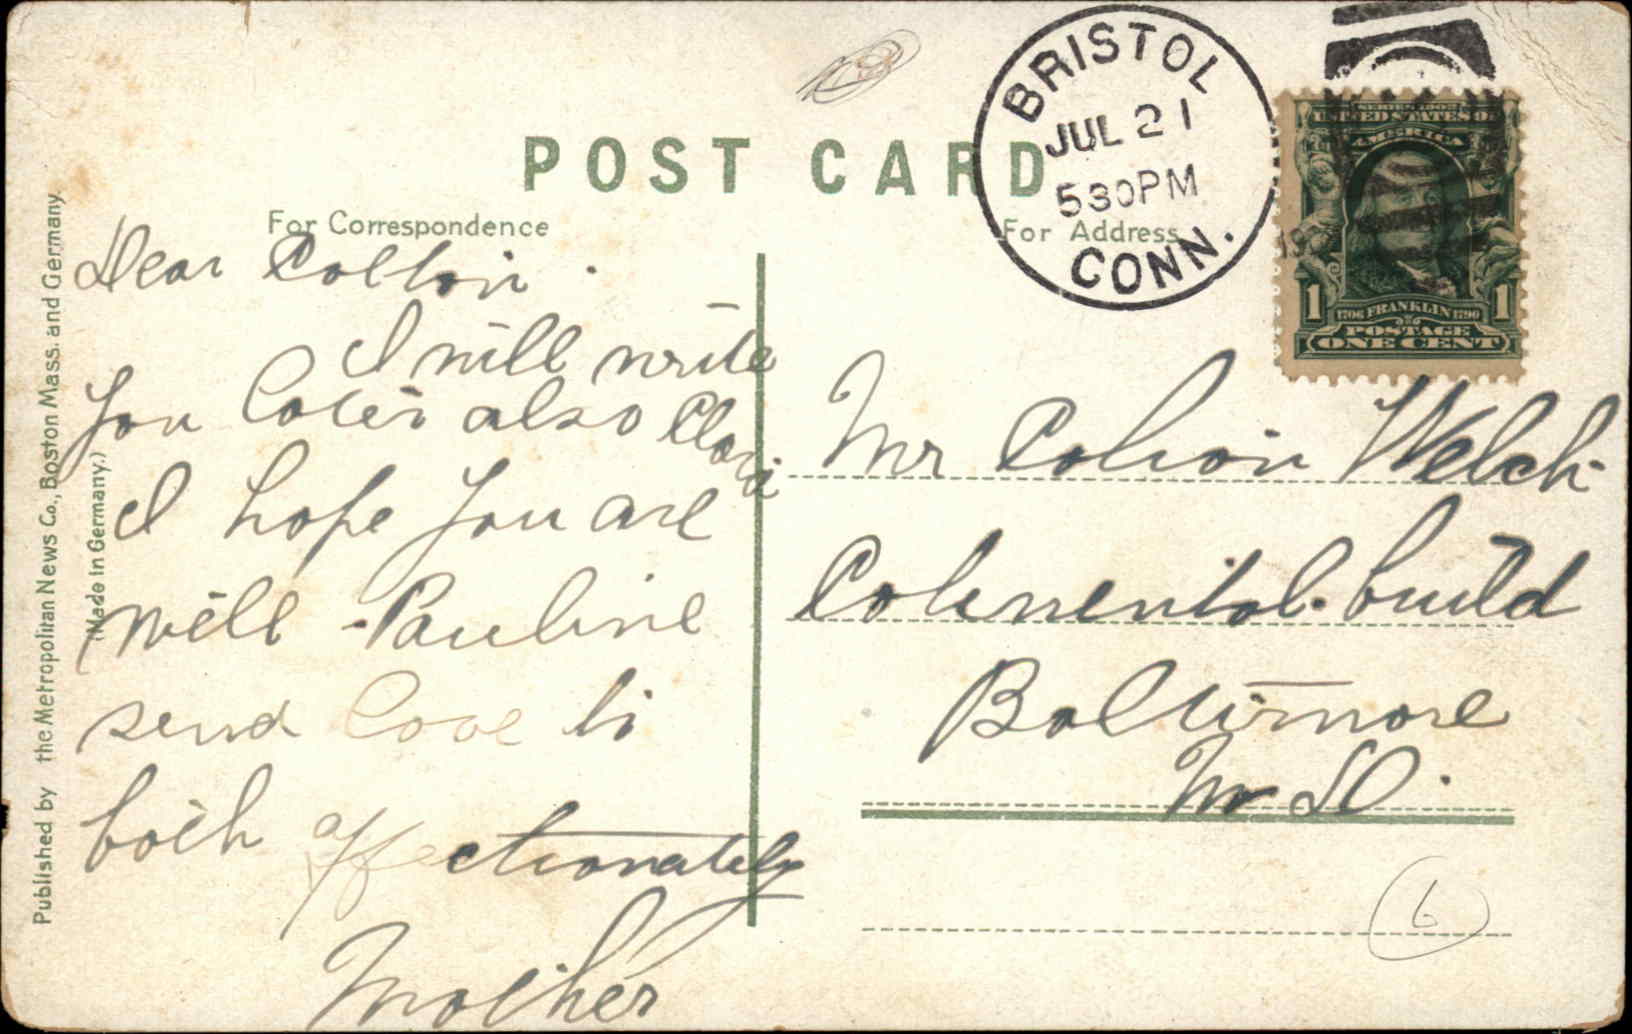 POST CARD
For Correspondence
For Address
BRISTOL
JUL 21
530PM
CONN.
SERIES 1902
UNITED STATES OF
AMERICA
1 1706 FRANKLIN 1790 1
POSTAGE
ONE CENT
Dear
I will write
you later also
I hope you are
well - Pauline
send love to
both affectionately
Mother
Mr Welch
build
Baltimore
Md.
6
Published by the Metropolitan News Co., Boston Mass. and Germany.
(Made in Germany.)